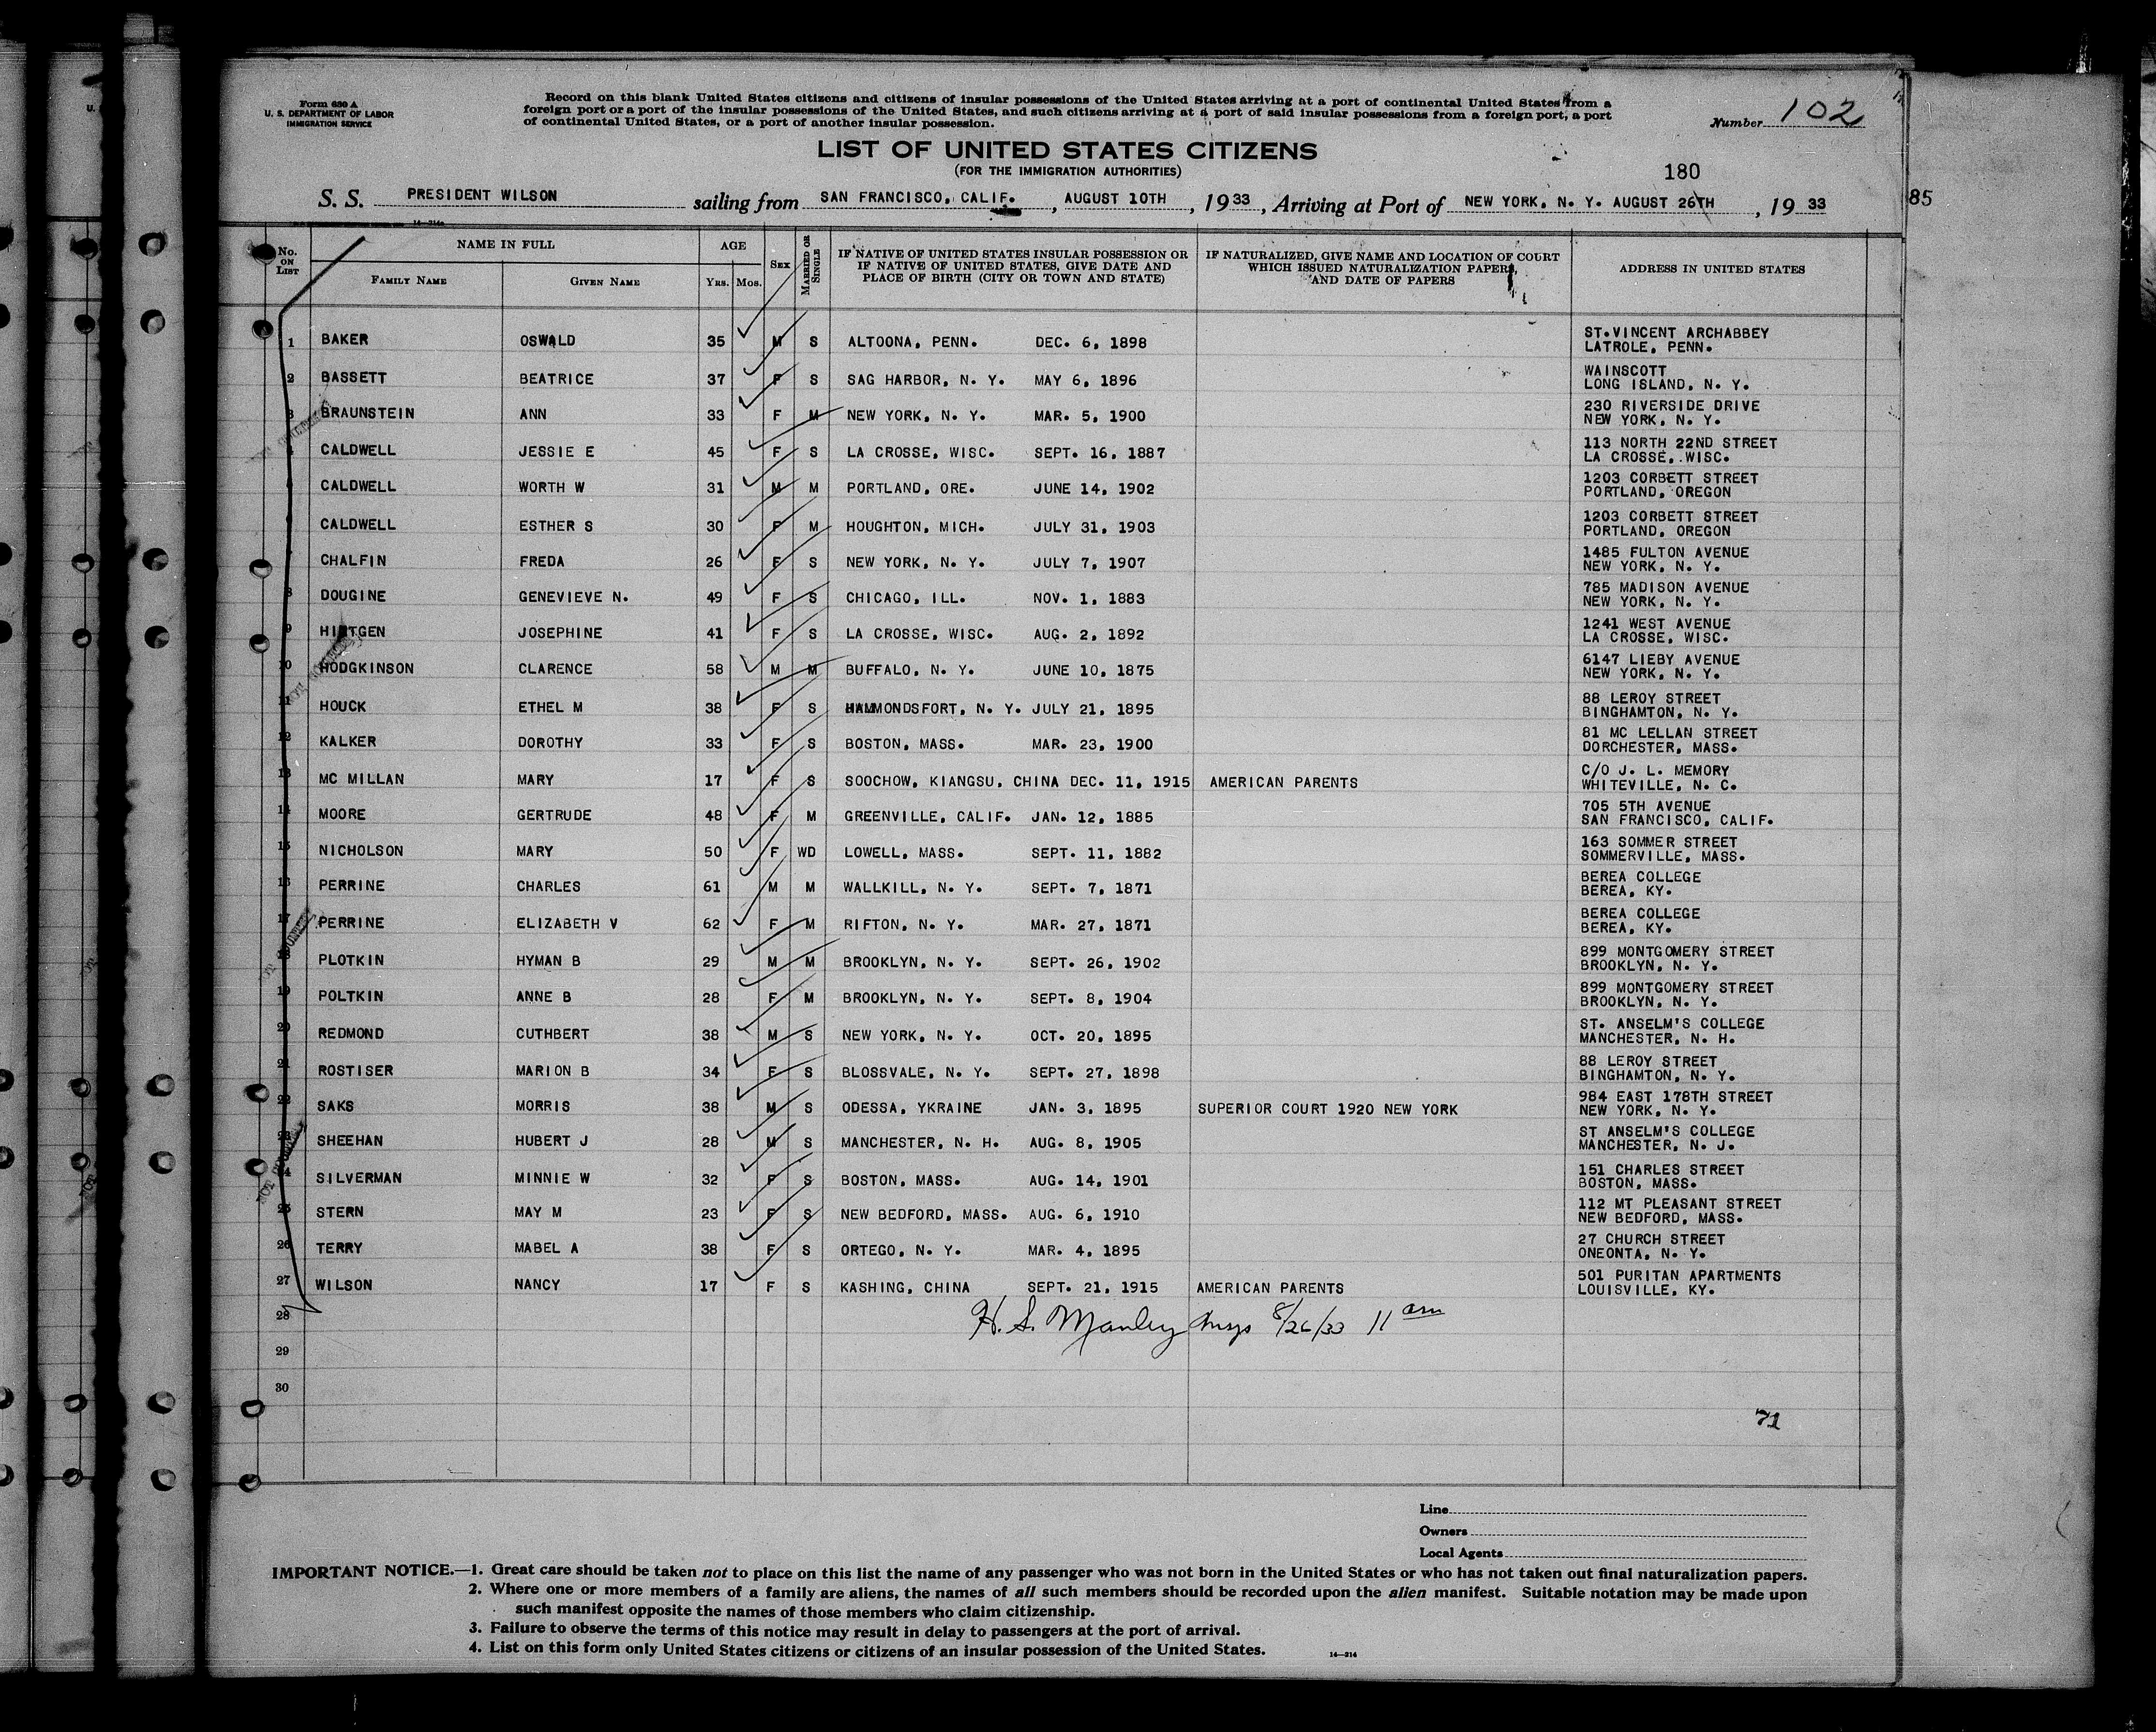 Form 630 A
U. S. DEPARTMENT OF LABOR
IMMIGRATION SERVICE
Record on this blank United States citizens and citizens of insular possessions of the United States arriving at a port of continental United States from a
foreign port or a port of the insular possessions of the United States, and such citizens arriving at a port of said insular possessions from a foreign port, a port
of continental United States, or a port of another insular possession.
Number 102
LIST OF UNITED STATES CITIZENS
(FOR THE IMMIGRATION AUTHORITIES)
180
85
S. S. PRESIDENT WILSON sailing from SAN FRANCISCO, CALIF. , AUGUST 10TH , 1933 , Arriving at Port of NEW YORK, N. Y. AUGUST 26TH , 19 33
No. ON LIST
NAME IN FULL
FAMILY NAME GIVEN NAME
AGE
YRS. MOS.
SEX
MARRIED OR SINGLE
IF NATIVE OF UNITED STATES INSULAR POSSESSION OR
IF NATIVE OF UNITED STATES, GIVE DATE AND
PLACE OF BIRTH (CITY OR TOWN AND STATE)
IF NATURALIZED, GIVE NAME AND LOCATION OF COURT
WHICH ISSUED NATURALIZATION PAPERS,
AND DATE OF PAPERS
ADDRESS IN UNITED STATES
1 BAKER OSWALD 35 M S ALTOONA, PENN. DEC. 6, 1898 ST.VINCENT ARCHABBEY
LATROLE, PENN.
2 BASSETT BEATRICE 37 F S SAG HARBOR, N. Y. MAY 6, 1896 WAINSCOTT
LONG ISLAND, N. Y.
3 BRAUNSTEIN ANN 33 F M NEW YORK, N. Y. MAR. 5, 1900 230 RIVERSIDE DRIVE
NEW YORK, N. Y.
CALDWELL JESSIE E 45 F S LA CROSSE, WISC. SEPT. 16, 1887 113 NORTH 22ND STREET
LA CROSSE, WISC.
CALDWELL WORTH W 31 M M PORTLAND, ORE. JUNE 14, 1902 1203 CORBETT STREET
PORTLAND, OREGON
CALDWELL ESTHER S 30 F M HOUGHTON, MICH. JULY 31, 1903 1203 CORBETT STREET
PORTLAND, OREGON
CHALFIN FREDA 26 F S NEW YORK, N. Y. JULY 7, 1907 1485 FULTON AVENUE
NEW YORK, N. Y.
8 DOUGINE GENEVIEVE N. 49 F S CHICAGO, ILL. NOV. 1, 1883 785 MADISON AVENUE
NEW YORK, N. Y.
9 HIRTGEN JOSEPHINE 41 F S LA CROSSE, WISC. AUG. 2, 1892 1241 WEST AVENUE
LA CROSSE, WISC.
10 HODGKINSON CLARENCE 58 M M BUFFALO, N. Y. JUNE 10, 1875 6147 LIEBY AVENUE
NEW YORK, N. Y.
11 HOUCK ETHEL M 38 F S HAMMONDSFORT, N. Y. JULY 21, 1895 88 LEROY STREET
BINGHAMTON, N. Y.
12 KALKER DOROTHY 33 F S BOSTON, MASS. MAR. 23, 1900 81 MC LELLAN STREET
DORCHESTER, MASS.
13 MC MILLAN MARY 17 F S SOOCHOW, KIANGSU, CHINA DEC. 11, 1915 AMERICAN PARENTS C/O J. L. MEMORY
WHITEVILLE, N. C.
14 MOORE GERTRUDE 48 F M GREENVILLE, CALIF. JAN. 12, 1885 705 5TH AVENUE
SAN FRANCISCO, CALIF.
15 NICHOLSON MARY 50 F WD LOWELL, MASS. SEPT. 11, 1882 163 SOMMER STREET
SOMMERVILLE, MASS.
16 PERRINE CHARLES 61 M M WALLKILL, N. Y. SEPT. 7, 1871 BEREA COLLEGE
BEREA, KY.
17 PERRINE ELIZABETH V 62 F M RIFTON, N. Y. MAR. 27, 1871 BEREA COLLEGE
BEREA, KY.
18 PLOTKIN HYMAN B 29 M M BROOKLYN, N. Y. SEPT. 26, 1902 899 MONTGOMERY STREET
BROOKLYN, N. Y.
19 POLTKIN ANNE B 28 F M BROOKLYN, N. Y. SEPT. 8, 1904 899 MONTGOMERY STREET
BROOKLYN, N. Y.
20 REDMOND CUTHBERT 38 M S NEW YORK, N. Y. OCT. 20, 1895 ST. ANSELM'S COLLEGE
MANCHESTER, N. H.
21 ROSTISER MARION B 34 F S BLOSSVALE, N. Y. SEPT. 27, 1898 88 LEROY STREET
BINGHAMTON, N. Y.
22 SAKS MORRIS 38 M S ODESSA, YKRAINE JAN. 3, 1895 SUPERIOR COURT 1920 NEW YORK 984 EAST 178TH STREET
NEW YORK, N. Y.
23 SHEEHAN HUBERT J 28 M S MANCHESTER, N. H. AUG. 8, 1905 ST ANSELM'S COLLEGE
MANCHESTER, N. J.
24 SILVERMAN MINNIE W 32 F S BOSTON, MASS. AUG. 14, 1901 151 CHARLES STREET
BOSTON, MASS.
25 STERN MAY M 23 F S NEW BEDFORD, MASS. AUG. 6, 1910 112 MT PLEASANT STREET
NEW BEDFORD, MASS.
26 TERRY MABEL A 38 F S ORTEGO, N. Y. MAR. 4, 1895 27 CHURCH STREET
ONEONTA, N. Y.
27 WILSON NANCY 17 F S KASHING, CHINA SEPT. 21, 1915 AMERICAN PARENTS 501 PURITAN APARTMENTS
LOUISVILLE, KY.
28 H. S. Manley Insp 8/26/33 11 am
29
30
71
Line
Owners
Local Agents
IMPORTANT NOTICE.—1. Great care should be taken not to place on this list the name of any passenger who was not born in the United States or who has not taken out final naturalization papers.
2. Where one or more members of a family are aliens, the names of all such members should be recorded upon the alien manifest. Suitable notation may be made upon
such manifest opposite the names of those members who claim citizenship.
3. Failure to observe the terms of this notice may result in delay to passengers at the port of arrival.
4. List on this form only United States citizens or citizens of an insular possession of the United States.
14—214